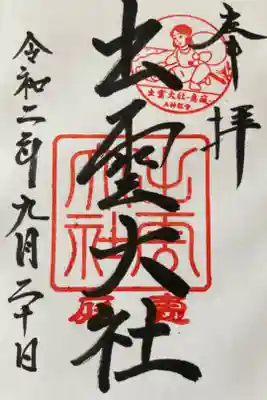 奉拝
出雲大社
令和二年九月二十日
出雲大社